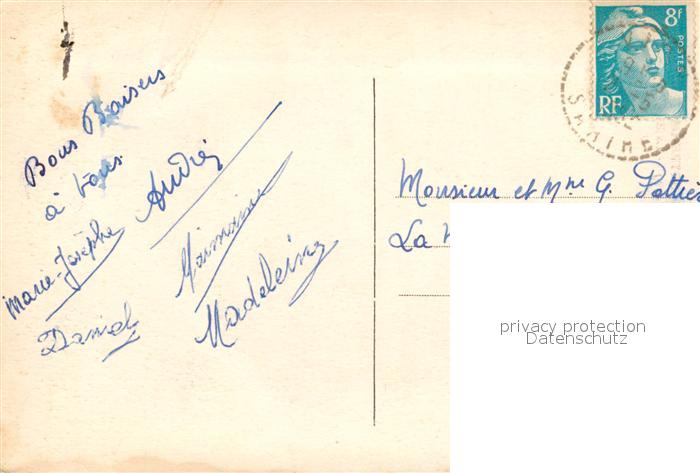 Bons Baisers
à tous
André
Marie-Josèphe
Daniel
Madeleine
8f
POSTES
RF
SARTHE
Monsieur et Mme G. Pottier
La
privacy protection
Datenschutz